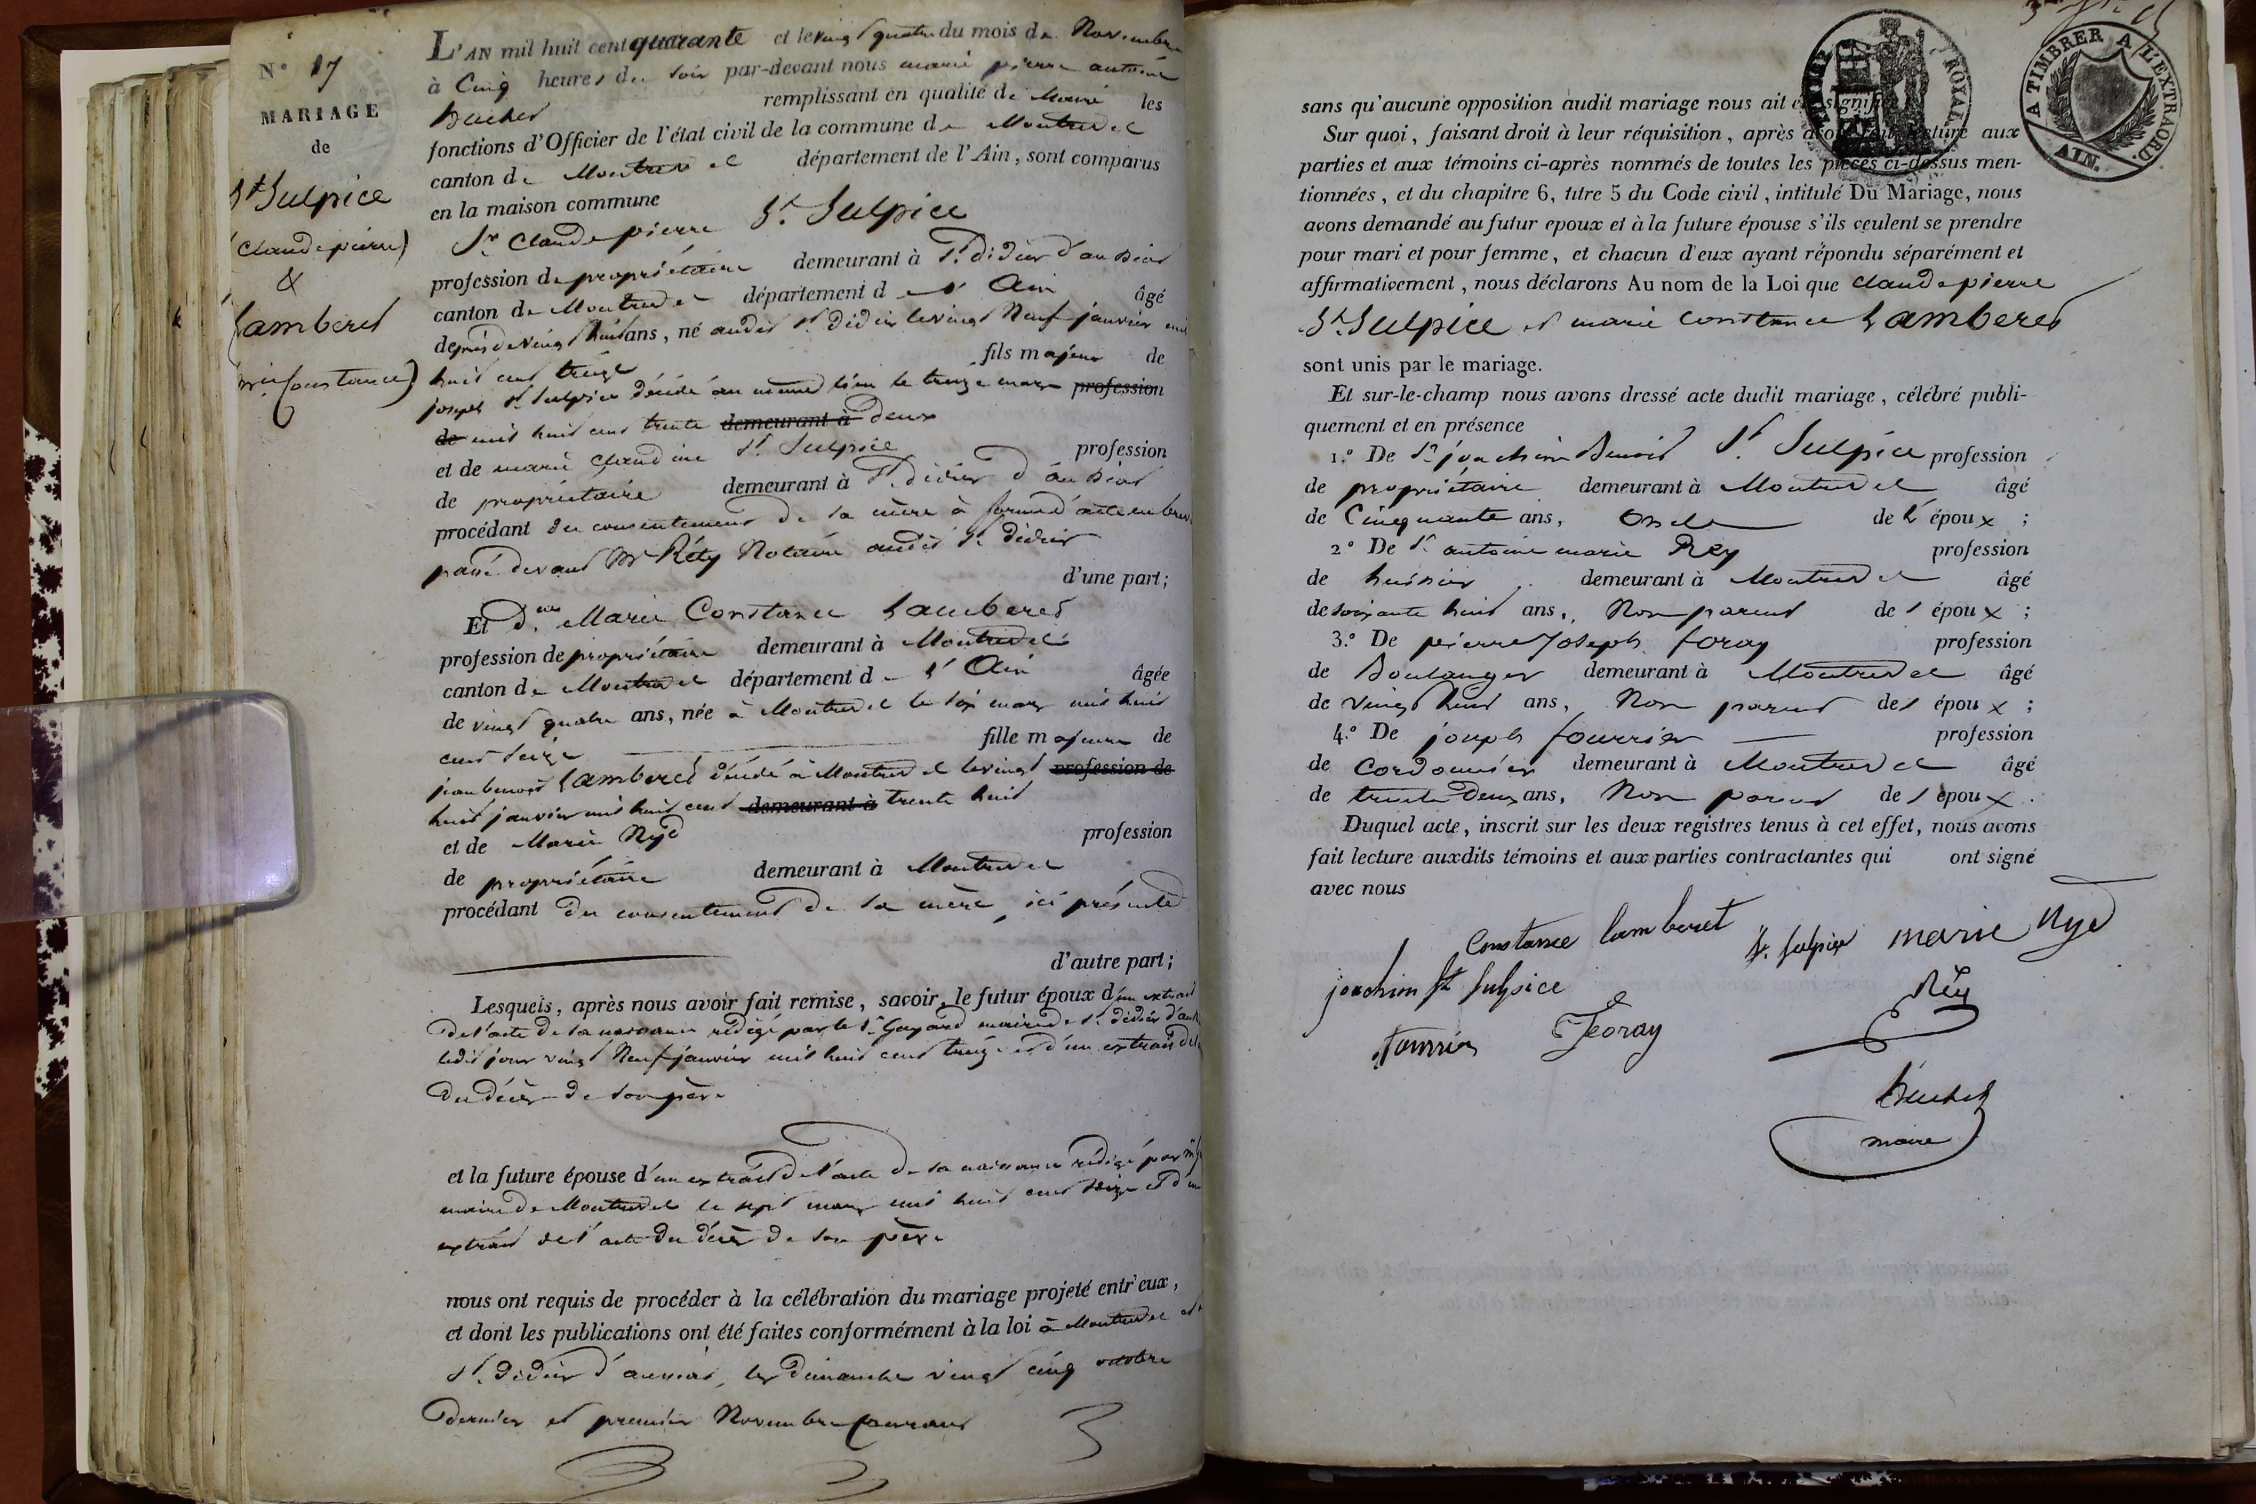 N.º 17
MARIAGE
de
St Sulpice
(Claude pierre)
&
Lamberet
(mie Constance)
L'AN mil huit cent quarante et le vingt quatre du mois de Novembre
à Cinq heures du soir par-devant nous marie pierre antoine
remplissant en qualité de Maire les
fonctions d'Officier de l'état civil de la commune de Montrevel
canton de Montrevel département de l'Ain, sont comparus
en la maison commune
Sr Claude pierre St Sulpice
profession de propriétaire demeurant à St didier d'aussiat
canton de Montrevel département de l'Ain âgé
de près de vingt huit ans, né audit St didier le vingt Neuf janvier mil
huit cent treize fils majeur de
joseph St Sulpice décédé au même lieu le treize mars profession
de mil huit cent trente demeurant à deux
et de marie claudine St Sulpice profession
de propriétaire demeurant à St didier d'aussiat
procédant du consentement de sa mère à forme d'acte en brevet
passé devant Me Réty Notaire audit St didier
d'une part;
Et Dlle Marie Constance Lamberet
profession de propriétaire demeurant à Montrevel
canton de Montrevel département de l'Ain âgée
de vingt quatre ans, née à Montrevel le six mars mil huit
cent seize fille majeure de
jean benoit Lamberet décédé à Montrevel le vingt profession de
huit janvier mil huit cent demeurant à trente huit
et de Marie Nyd profession
de propriétaire demeurant à Montrevel
procédant du consentement de sa mère, ici présente
d'autre part;
Lesquels, après nous avoir fait remise, savoir, le futur époux d'un extrait
de l'acte de sa naissance rédigé par le Sr Gayard maire de St didier
ledit jour vingt Neuf janvier mil huit cent treize et d'un extrait de
du décès de son père
et la future épouse d'un extrait de l'acte de sa naissance rédigé par
maire de Montrevel le sept mars mil huit cent seize et d'un
extrait de l'acte du décès de son père
nous ont requis de procéder à la célébration du mariage projeté entr'eux,
et dont les publications ont été faites conformément à la loi à Montrevel et
St didier d'aussiat, les dimanche vingt cinq octobre
dernier et premier Novembre Courant
TIMBRE ROYAL
A TIMBRER A L'EXTRAORD.
AIN.
sans qu'aucune opposition audit mariage nous ait été signifiée
Sur quoi, faisant droit à leur réquisition, après avoir fait lecture aux
parties et aux témoins ci-après nommés de toutes les pièces ci-dessus men-
tionnées, et du chapitre 6, titre 5 du Code civil, intitulé Du Mariage, nous
avons demandé au futur epoux et à la future épouse s'ils veulent se prendre
pour mari et pour femme, et chacun d'eux ayant répondu séparément et
affirmativement, nous déclarons Au nom de la Loi que Claude pierre
St Sulpice et marie Constance Lamberet
sont unis par le mariage.
Et sur-le-champ nous avons dressé acte dudit mariage, célébré publi-
quement et en présence
1.º De Sr joachim Benoit St Sulpice profession
de propriétaire demeurant à Montrevel âgé
de Cinquante ans, Oncle de l'époux;
2º De Sr antoine marie Rey profession
de huissier demeurant à Montrevel âgé
de soixante huit ans, Non parent des époux;
3.º De pierre Joseph foray profession
de Boulanger demeurant à Montrevel âgé
de vingt huit ans, Non parent des époux;
4.º De joseph fourrier profession
de cordonnier demeurant à Montrevel âgé
de trente deux ans, Non parent des époux.
Duquel acte, inscrit sur les deux registres tenus à cet effet, nous avons
fait lecture auxdits témoins et aux parties contractantes qui ont signé
avec nous
Constance lamberet St Sulpice marie Nyd
joachim St Sulpice Rey
fourrier Foray
maire